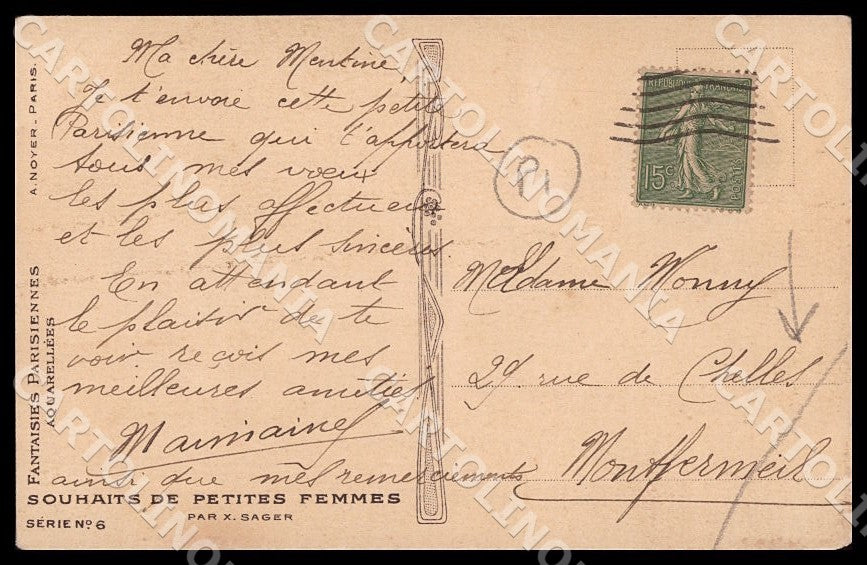 Ma chère Mentine,
Je t'envoie cette petite
Parisienne qui t'apportera
tous mes vœux
les plus affectueux
et les plus sincères.
En attendant
le plaisir de te
voir reçois mes
meilleures amitiés
ainsi que mes remerciements
Madame Monny
rue de Chelles
Montfermeil
RÉPUBLIQUE FRANÇAISE
15c
A. NOYER - PARIS.
FANTAISIES PARISIENNES
AQUARELLÉES
SOUHAITS DE PETITES FEMMES
PAR X. SAGER
SÉRIE No 6
CARTOLINOMANIA